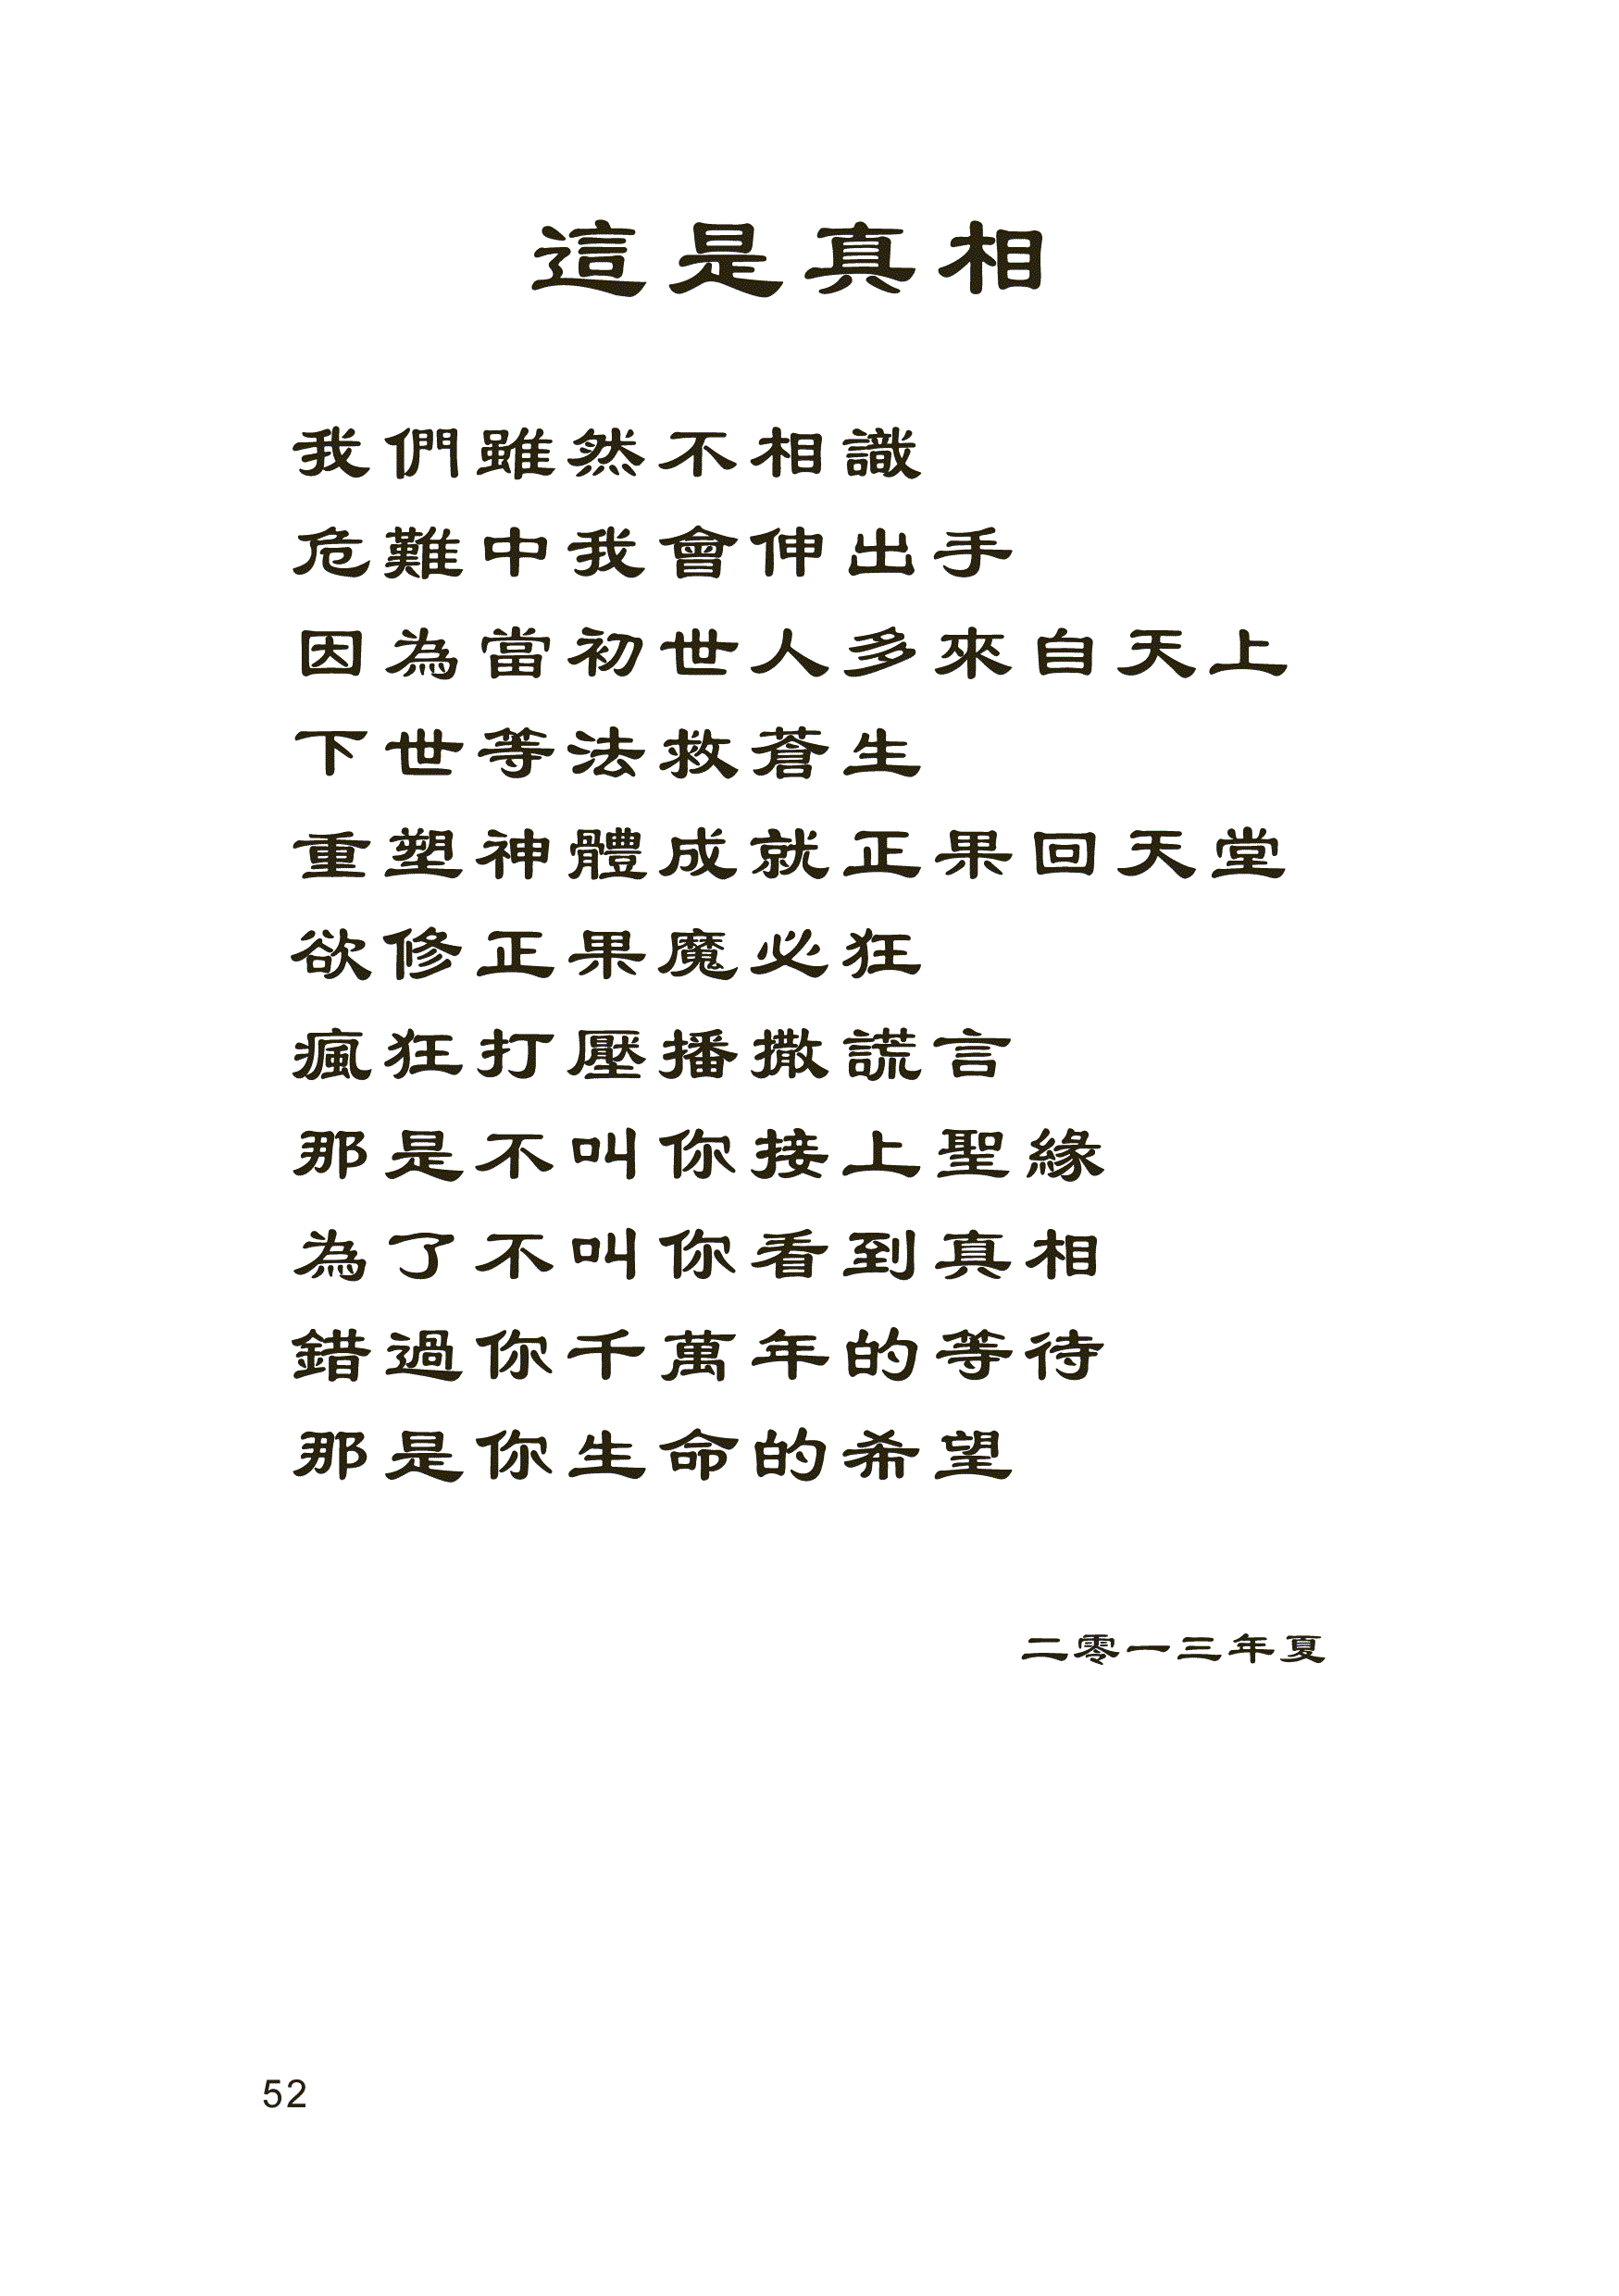 這是真相
我們雖然不相識
危難中我會伸出手
因為當初世人多來自天上
下世等法救蒼生
重塑神體成就正果回天堂
欲修正果魔必狂
瘋狂打壓播撒謊言
那是不叫你接上聖緣
為了不叫你看到真相
錯過你千萬年的等待
那是你生命的希望
二零一三年夏
52